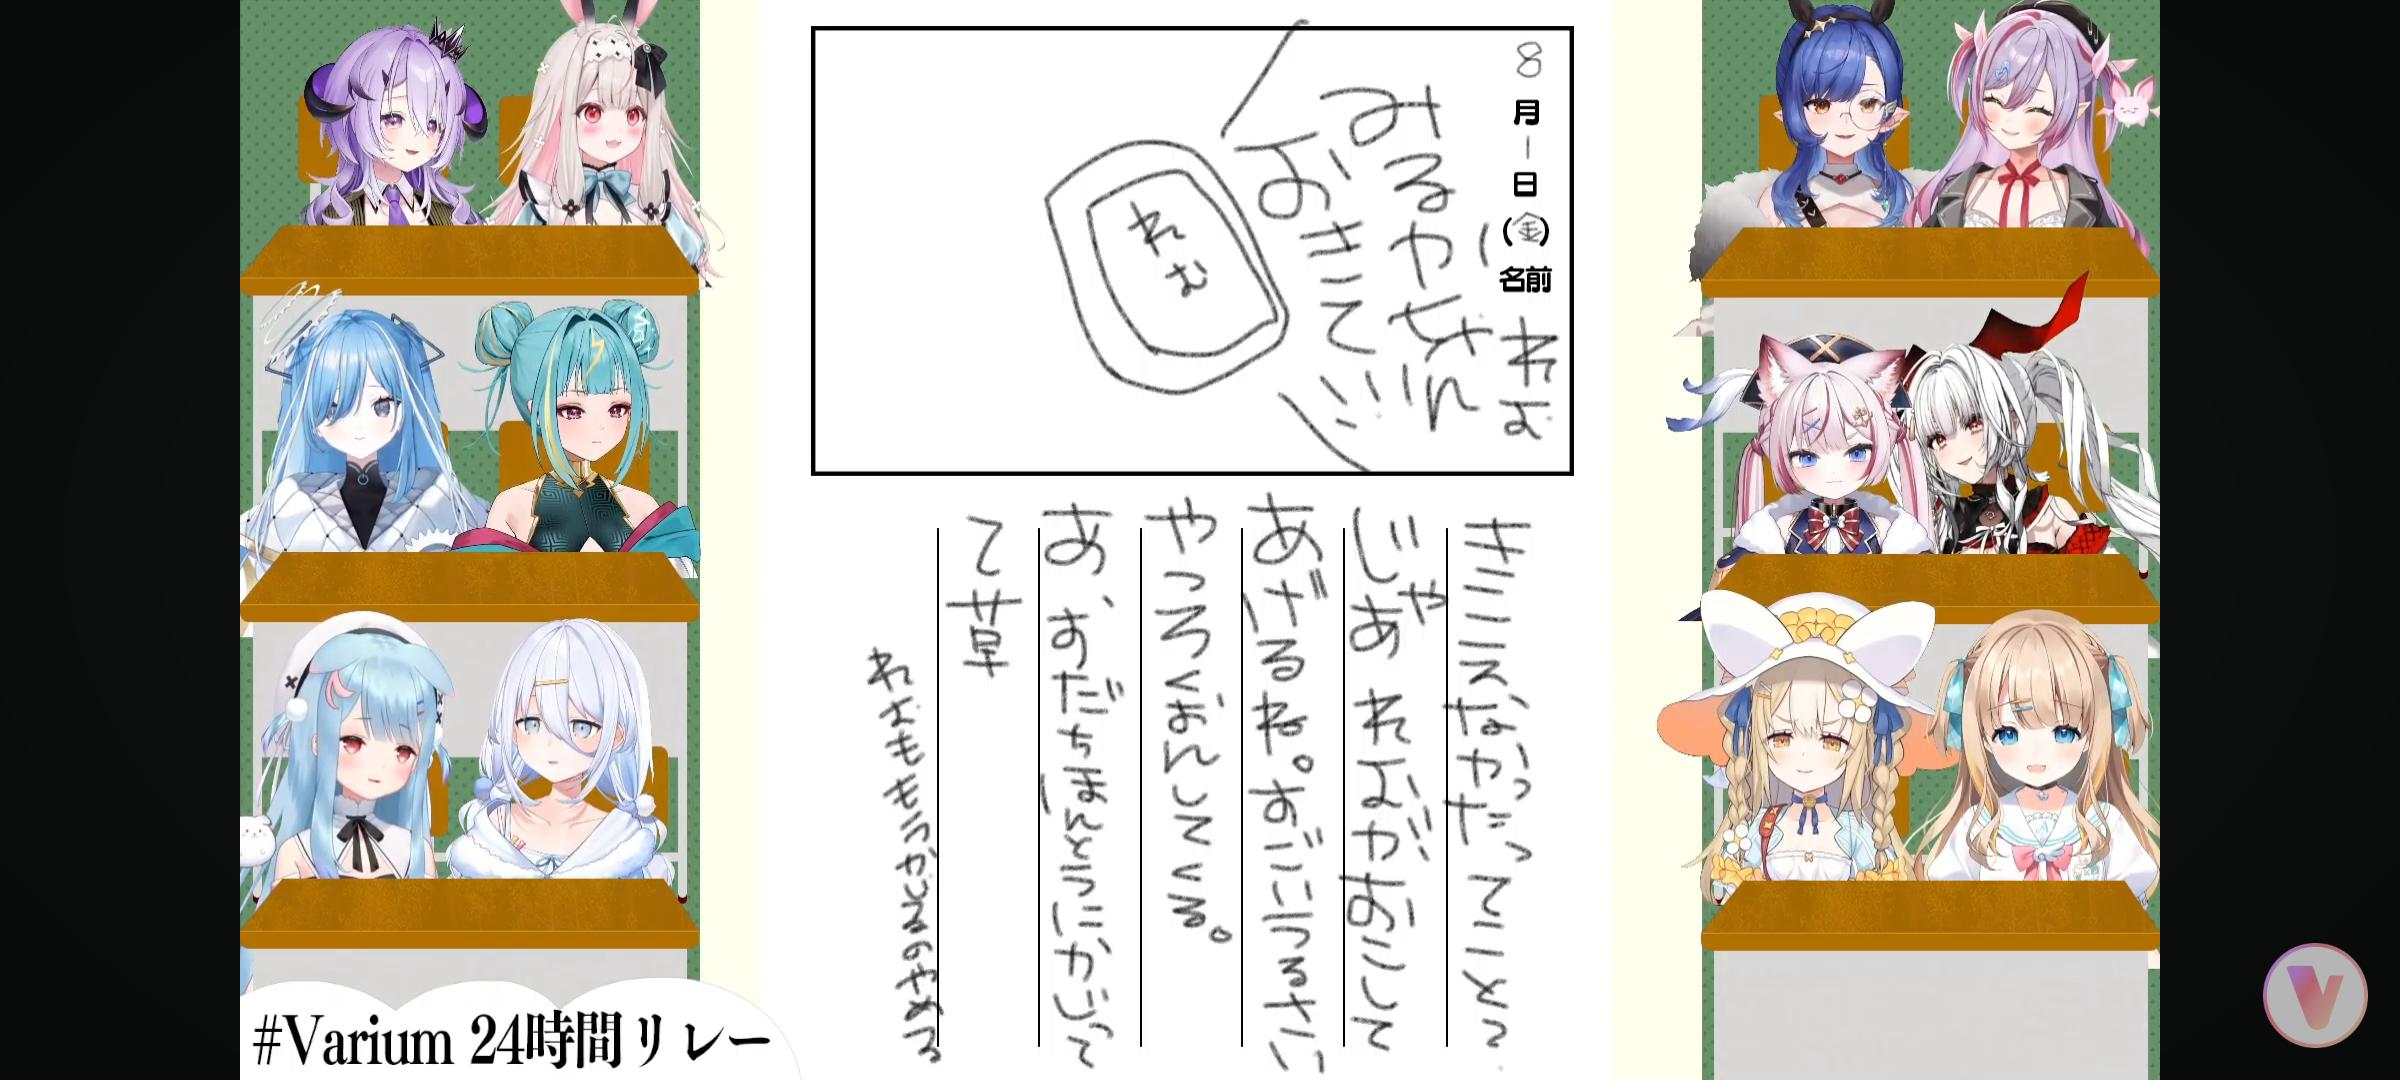 8月1日(金)名前 れむ
みるやちゃん
おきて
れむ
きこえなかったってこと?
じゃあ れむがおこして
あげるね。すごいうるさい
やつろくおんしてくる。
あ、すだちほんとうにかじっ
て草
れむももうかじるのやめる
#Varium 24時間リレー
V